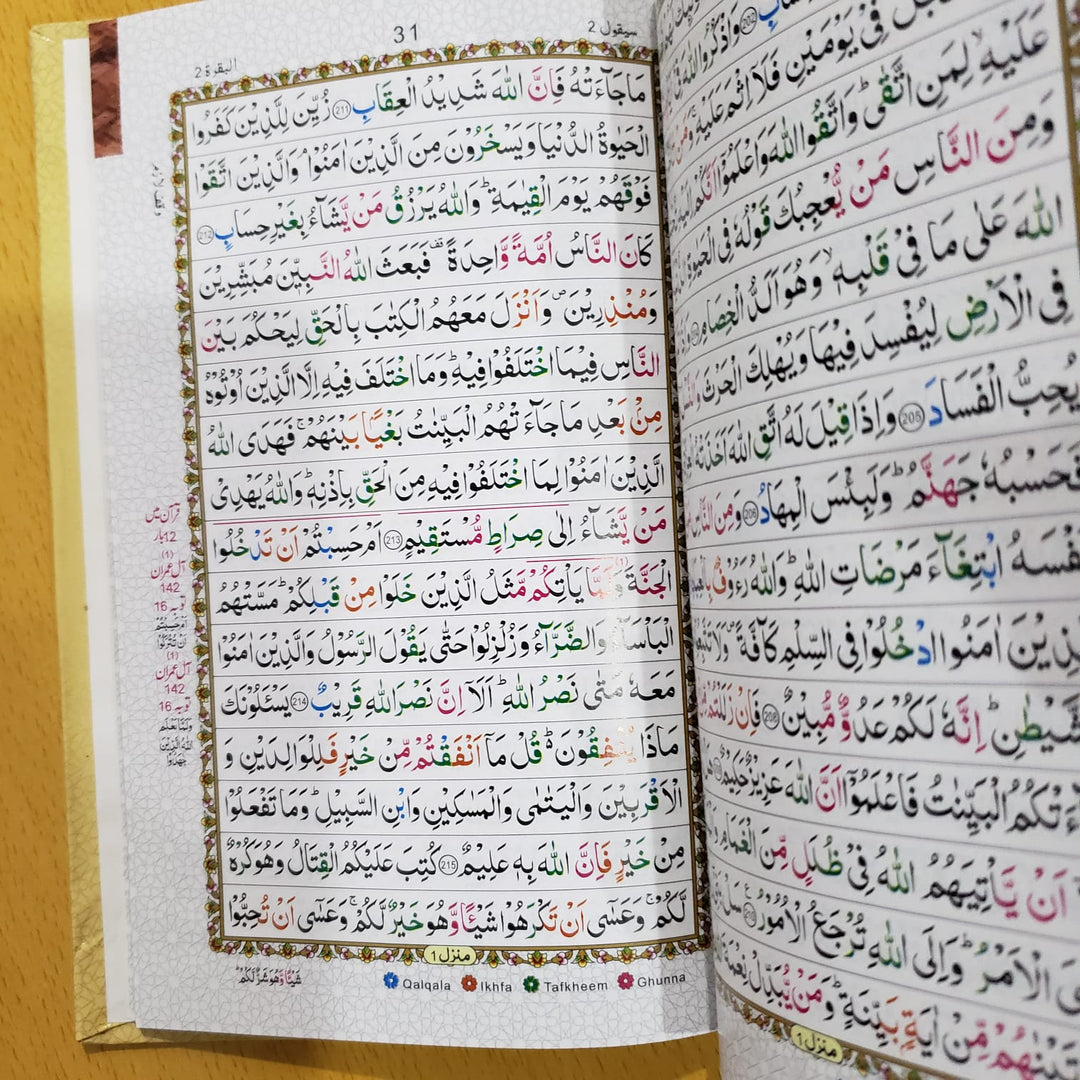 البقرة 2
31
سيقول 2
مَاجَآءَتْهُ فَاِنَّ اللّٰهَ شَدِيْدُ الْعِقَابِ 211 زُيِّنَ لِلَّذِيْنَ كَفَرُوا
الْحَيٰوةُ الدُّنْيَا وَيَسْخَرُوْنَ مِنَ الَّذِيْنَ اٰمَنُوْا ۘ وَالَّذِيْنَ اتَّقَوْا
فَوْقَهُمْ يَوْمَ الْقِيٰمَةِ ؕ وَاللّٰهُ يَرْزُقُ مَنْ يَّشَآءُ بِغَيْرِ حِسَابٍ 212
كَانَ النَّاسُ اُمَّةً وَّاحِدَةً ۟ فَبَعَثَ اللّٰهُ النَّبِيّٖنَ مُبَشِّرِيْنَ
وَمُنْذِرِيْنَ ۪ وَاَنْزَلَ مَعَهُمُ الْكِتٰبَ بِالْحَقِّ لِيَحْكُمَ بَيْنَ
النَّاسِ فِيْمَا اخْتَلَفُوْا فِيْهِ ؕ وَمَا اخْتَلَفَ فِيْهِ اِلَّا الَّذِيْنَ اُوْتُوْهُ
مِنْۢ بَعْدِ مَا جَآءَتْهُمُ الْبَيِّنٰتُ بَغْيًۢا بَيْنَهُمْ ۚ فَهَدَى اللّٰهُ
الَّذِيْنَ اٰمَنُوْا لِمَا اخْتَلَفُوْا فِيْهِ مِنَ الْحَقِّ بِاِذْنِهٖ ؕ وَاللّٰهُ يَهْدِيْ
مَنْ يَّشَآءُ اِلٰى صِرَاطٍ مُّسْتَقِيْمٍ 213 اَمْ حَسِبْتُمْ اَنْ تَدْخُلُوا
الْجَنَّةَ وَلَمَّا (1) يَاْتِكُمْ مَّثَلُ الَّذِيْنَ خَلَوْا مِنْ قَبْلِكُمْ ؕ مَسَّتْهُمُ
الْبَاْسَآءُ وَالضَّرَّآءُ وَزُلْزِلُوْا حَتّٰى يَقُوْلَ الرَّسُوْلُ وَالَّذِيْنَ اٰمَنُوْا
مَعَهٗ مَتٰى نَصْرُ اللّٰهِ ؕ اَلَاۤ اِنَّ نَصْرَ اللّٰهِ قَرِيْبٌ 214 يَسْـَٔلُوْنَكَ
مَاذَا يُنْفِقُوْنَ ؕ قُلْ مَاۤ اَنْفَقْتُمْ مِّنْ خَيْرٍ فَلِلْوَالِدَيْنِ وَ
الْاَقْرَبِيْنَ وَالْيَتٰمٰى وَالْمَسٰكِيْنِ وَابْنِ السَّبِيْلِ ؕ وَمَا تَفْعَلُوْا
مِنْ خَيْرٍ فَاِنَّ اللّٰهَ بِهٖ عَلِيْمٌ 215 كُتِبَ عَلَيْكُمُ الْقِتَالُ وَهُوَ كُرْهٌ
لَّكُمْ ۚ وَعَسٰۤى اَنْ تَكْرَهُوْا شَيْـًٔا وَّهُوَ خَيْرٌ لَّكُمْ ۚ وَعَسٰۤى اَنْ تُحِبُّوْا
منزل 1
شَيْـًٔا وَّهُوَ شَرٌّ لَّكُمْ ؕ
Qalqala Ikhfa Tafkheem Ghunna
قرآن میں
12 بار
(1)
آل عمران
142
توبہ 16
اَمْ حَسِبْتُمْ
اَنْ تُتْرَكُوْا
(1)
آل عمران
142
توبہ 16
وَلَمَّا يَعْلَمِ
اللّٰهُ الَّذِيْنَ
جٰهَدُوْا
202 وَاذْكُرُوا اللّٰهَ فِيْۤ
فِيْ يَوْمَيْنِ فَلَاۤ اِثْمَ عَلَيْهِ ۚ وَمَنْ
عَلَيْهِ ۙ لِمَنِ اتَّقٰى ؕ وَاتَّقُوا اللّٰهَ وَاعْلَمُوْۤا اَنَّكُمْ
وَمِنَ النَّاسِ مَنْ يُّعْجِبُكَ قَوْلُهٗ فِي الْحَيٰوةِ
اللّٰهَ عَلٰى مَا فِيْ قَلْبِهٖ ۙ وَهُوَ اَلَدُّ الْخِصَامِ
فِي الْاَرْضِ لِيُفْسِدَ فِيْهَا وَيُهْلِكَ الْحَرْثَ
يُحِبُّ الْفَسَادَ 205 وَاِذَا قِيْلَ لَهُ اتَّقِ اللّٰهَ اَخَذَتْهُ
فَحَسْبُهٗ جَهَنَّمُ ؕ وَلَبِئْسَ الْمِهَادُ 206 وَمِنَ النَّاسِ
نَفْسَهُ ابْتِغَآءَ مَرْضَاتِ اللّٰهِ ؕ وَاللّٰهُ رَءُوْفٌۢ
الَّذِيْنَ اٰمَنُوا ادْخُلُوْا فِي السِّلْمِ كَآفَّةً ۪ وَلَا
الشَّيْطٰنِ ؕ اِنَّهٗ لَكُمْ عَدُوٌّ مُّبِيْنٌ 208 فَاِنْ زَلَلْتُمْ
جَآءَتْكُمُ الْبَيِّنٰتُ فَاعْلَمُوْۤا اَنَّ اللّٰهَ عَزِيْزٌ حَكِيْمٌ
اَنْ يَّاْتِيَهُمُ اللّٰهُ فِيْ ظُلَلٍ مِّنَ الْغَمَامِ
الْاَمْرُ ؕ وَاِلَى اللّٰهِ تُرْجَعُ الْاُمُوْرُ 210 سَلْ
مِّنْ اٰيَةٍۢ بَيِّنَةٍ ؕ وَمَنْ يُّبَدِّلْ نِعْمَةَ
منزل 1